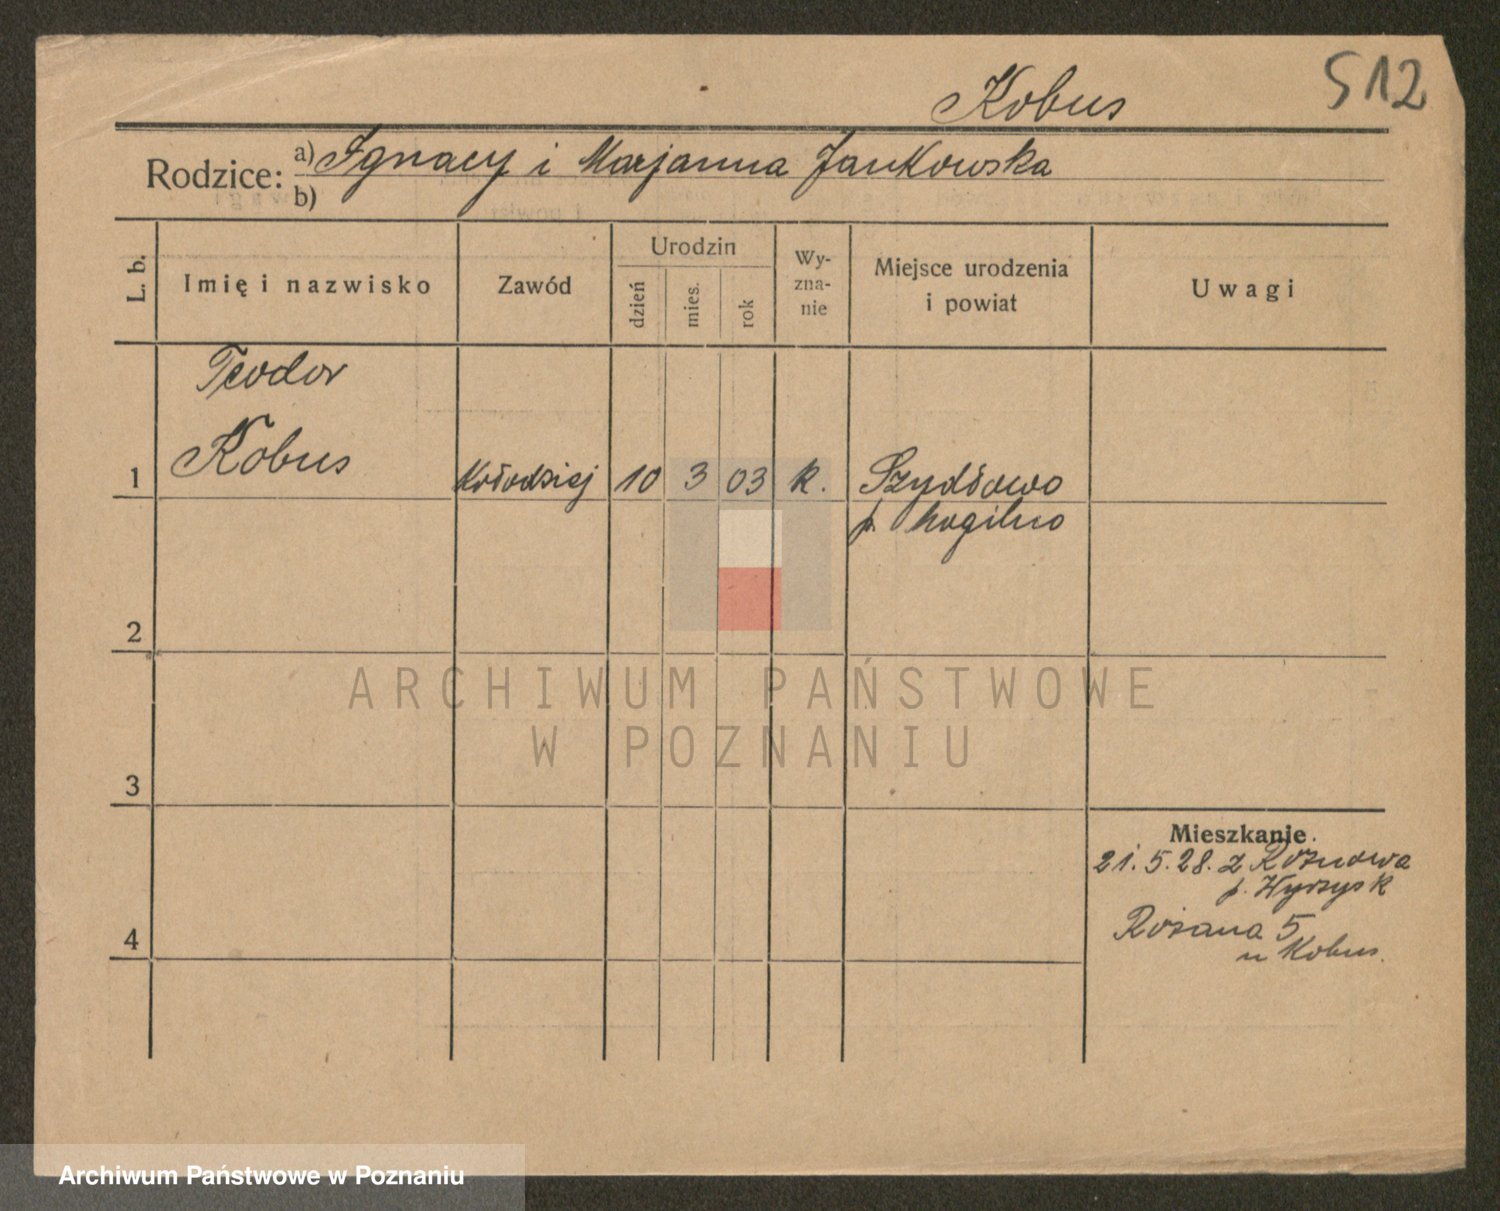 Kobus
512
Rodzice: a) Ignacy i Marjanna Jankowska
b)
L. b.
Imię i nazwisko
Zawód
Urodzin
dzień
mies.
rok
Wy-
zna-
nie
Miejsce urodzenia
i powiat
Uwagi
Teodor
Kobus
1
Kołodziej
10
3
03
k.
Szydłowo
p. Mogilno
2
3
4
Mieszkanie.
21.5.28. z Roznowa
p. Wyrzysk
Różana 5
u Kobus.
ARCHIWUM PAŃSTWOWE
W POZNANIU
Archiwum Państwowe w Poznaniu